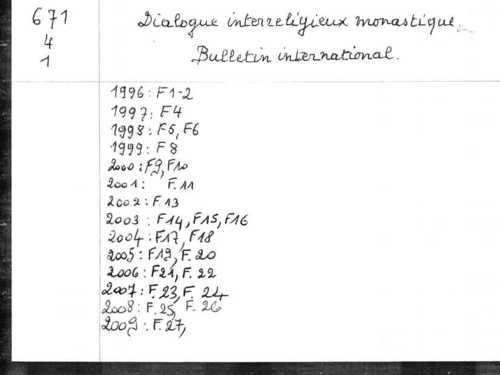 671 Dialogue interreligieux monastique.
4 Bulletin international.
1
1996 : F1-2
1997 : F4
1998 : F5, F6
1999 : F8
2000 : F9, F10
2001 : F.11
2002 : F.13
2003 : F14, F15, F16
2004 : F17, F18
2005 : F19, F. 20
2006 : F21, F. 22
2007 : F. 23, F. 24
2008 : F. 25, F. 26
2009 : F. 27,